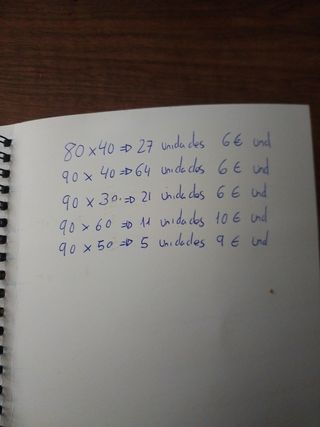 80 x 40 => 27 unidades 6 € und
90 x 40 => 64 unidades 6 € und
90 x 30. => 21 unidades 6 € und
90 x 60 => 11 unidades 10 € und
90 x 50 => 5 unidades 9 € und